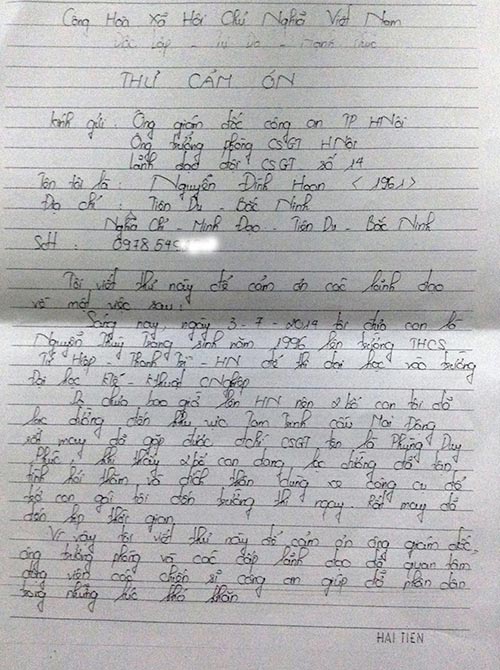 Cộng Hòa Xã Hội Chủ Nghĩa Việt Nam
Độc Lập - Tự Do - Hạnh Phúc
THƯ CẢM ƠN
Kính gửi : Ông giám đốc công an TP HNội
Ông trưởng phòng CSGT HNội
Lãnh đạo đội CSGT số 14
Tên tôi là : Nguyễn Đình Hoan < 1961 >
Địa chỉ : Tiên Du - Bắc Ninh
Nghĩa Chỉ - Minh Đạo - Tiên Du - Bắc Ninh
SĐT : 0978 549
Tôi viết thư này để cảm ơn các lãnh đạo
về một việc sau :
Sáng nay, ngày 3 - 7 - 2014 tôi đưa con là
Nguyễn Thùy Trang sinh năm 1996 lên trường THCS
Tứ Hiệp - Thanh Trì - HN để thi đại học vào trường
Đại học KTế - Kthuật CNghiệp
Do chưa bao giờ lên HN nên 2 bố con tôi đã
lạc đường đến khu vực Tam Trinh cầu Mai Động
rất may đã gặp được đ/chí CSGT tên là Phùng Duy
Phúc khi thấy 2 bố con đang lạc đường đã tận
tình hỏi thăm và đích thân dùng xe công vụ để
đưa con gái tôi đến trường thi ngay. Rất may đã
đến kịp thời gian
Vì vậy tôi viết thư này để cảm ơn ông giám đốc,
ông trưởng phòng và các cấp lãnh đạo đã quan tâm
động viên các chiến sĩ công an giúp đỡ nhân dân
trong những lúc khó khăn
HẢI TIẾN